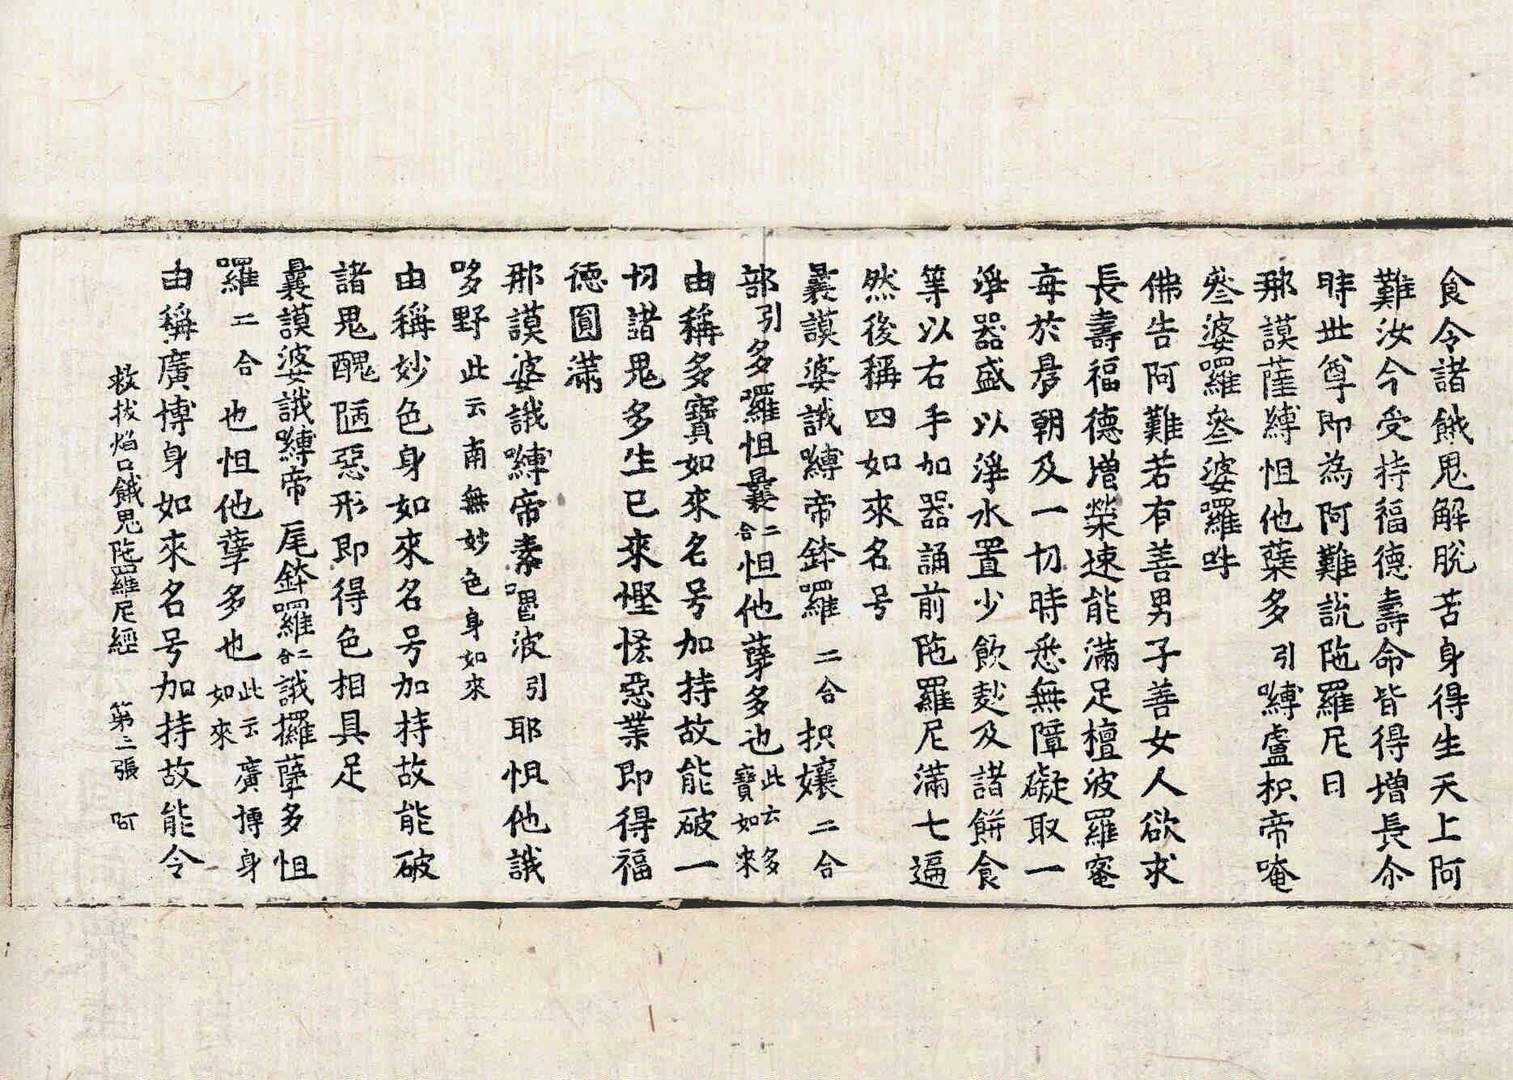 食令諸餓鬼解脫苦身得生天上阿
難汝今受持福德壽命皆得增長尒
時世尊即為阿難說陁羅尼曰
那謨薩嚩怛他蘖多引嚩盧枳帝唵
叁婆囉叁婆囉吽
佛告阿難若有善男子善女人欲求
長壽福德增榮速能滿足檀波羅蜜
每於晨朝及一切時悉無障礙取一
淨器盛以淨水置少飲麨及諸餅食
等以右手加器誦前陁羅尼滿七遍
然後稱四如來名号
曩謨婆誐嚩帝鉢囉二合枳孃二合
部引多羅怛曩二合怛他孽多也此云多寶如來
由稱多寶如來名号加持故能破一
切諸鬼多生已來慳恡惡業即得福
德圓滿
那謨婆誐嚩帝素嚕波引耶怛他誐
哆野此云南無妙色身如來
由稱妙色身如來名号加持故能破
諸鬼醜陋惡形即得色相具足
曩謨婆誐嚩帝尾鉢囉二合誐攞孽多怛
羅二合也怛他孽多也此云廣博身如來
由稱廣博身如來名号加持故能令
救拔焰口餓鬼陁羅尼經 第二張 阿